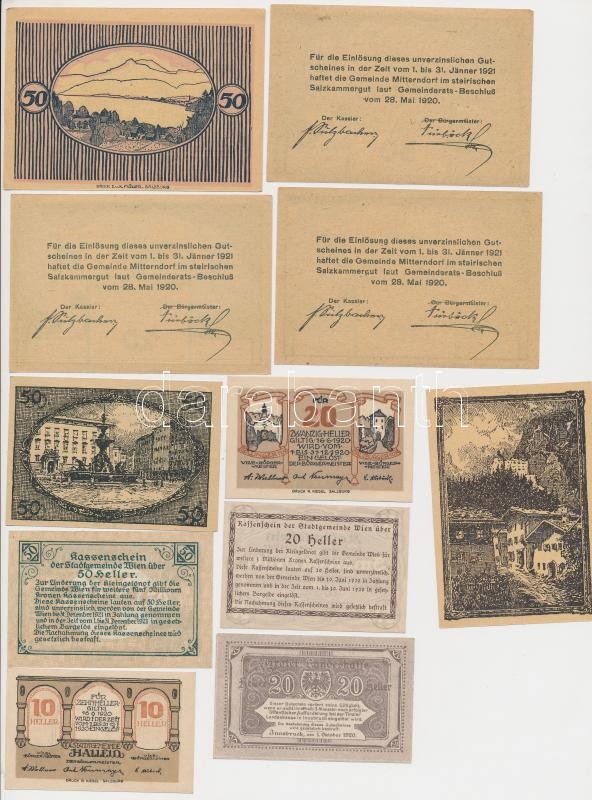 50
50
DRUCK
SALZBURG
Für die Einlösung dieses unverzinslichen Gut-
scheines in der Zeit vom 1. bis 31. Jänner 1921
haftet die Gemeinde Mitterndorf im steirischen
Salzkammergut laut Gemeinderats-Beschluß
vom 28. Mai 1920.
Der Kassier:
Der Bürgermeister:
Für die Einlösung dieses unverzinslichen Gut-
scheines in der Zeit vom 1. bis 31. Jänner 1921
haftet die Gemeinde Mitterndorf im steirischen
Salzkammergut laut Gemeinderats-Beschluß
vom 28. Mai 1920.
Der Kassier:
Der Bürgermeister:
Für die Einlösung dieses unverzinslichen Gut-
scheines in der Zeit vom 1. bis 31. Jänner 1921
haftet die Gemeinde Mitterndorf im steirischen
Salzkammergut laut Gemeinderats-Beschluß
vom 28. Mai 1920.
Der Kassier:
Der Bürgermeister:
darabanth
50
50
50
50
FÜR
20
ZWANZIG HELLER
GILTIG 16.6.1920
WIRD VOM
1. BIS 31.12.1920
EINGELÖST
DER BÜRGERMEISTER
VIZE-BÜRGER-
MEISTER
VIZE-BÜRGER-
MEISTER
DRUCK R. KIESEL SALZBURG
Kassenschein der Stadtgemeinde Wien über
20 Heller
Der Linderung der Kleingeldnot gibt die Gemeinde Wien für
weitere 1 Millionen Kronen Kassenscheine aus.
Diese Kassenscheine lauten auf 20 Heller, sind unverzinslich,
werden von der Gemeinde Wien bis 30. Juni 1920 in Zahlung
genommen und in der Zeit vom 1. bis 30. Juni 1920 in gesetzlichem
Bargelde eingelöst.
Die Nachahmung dieses Kassenscheines wird gesetzlich bestraft
50
50
Kassenschein
der Stadtgemeinde Wien über
50 Heller.
Zur Linderung der Kleingeldnot gibt die
Gemeinde Wien für weitere fünf Millionen
Kronen Kassenscheine aus.
Diese Kassenscheine lauten auf 50 Heller, sind
unverzinslich, werden von der Gemeinde Wien
bis 31. Dezember 1921 in Zahlung genommen
und in der Zeit vom 1. bis 31. Dezember 1921 in
gesetzlichem Bargelde eingelöst.
Die Nachahmung dieses Kassenscheines wird
gesetzlich bestraft.
20
20
Heller
Dieser Gutschein verliert seine Gültigkeit,
öffentlicher Aufforderung bei der Tiroler
Landeskassa in Innsbruck eingelöst wird.
Die Nachahmung dieses Gutscheines
wird gesetzlich bestraft
Innsbruck, am 1. Oktober 1920.
10
HELLER
10
HELLER
FÜR
ZEHN HELLER
GILTIG
16.6.1920
WIRD I. DER ZEIT
VOM 1. BIS 31.12.
1920 EINGELÖST
STADTGEMEINDE
HALLEIN
DER BÜRGERMEISTER
DRUCK R. KIESEL SALZBURG